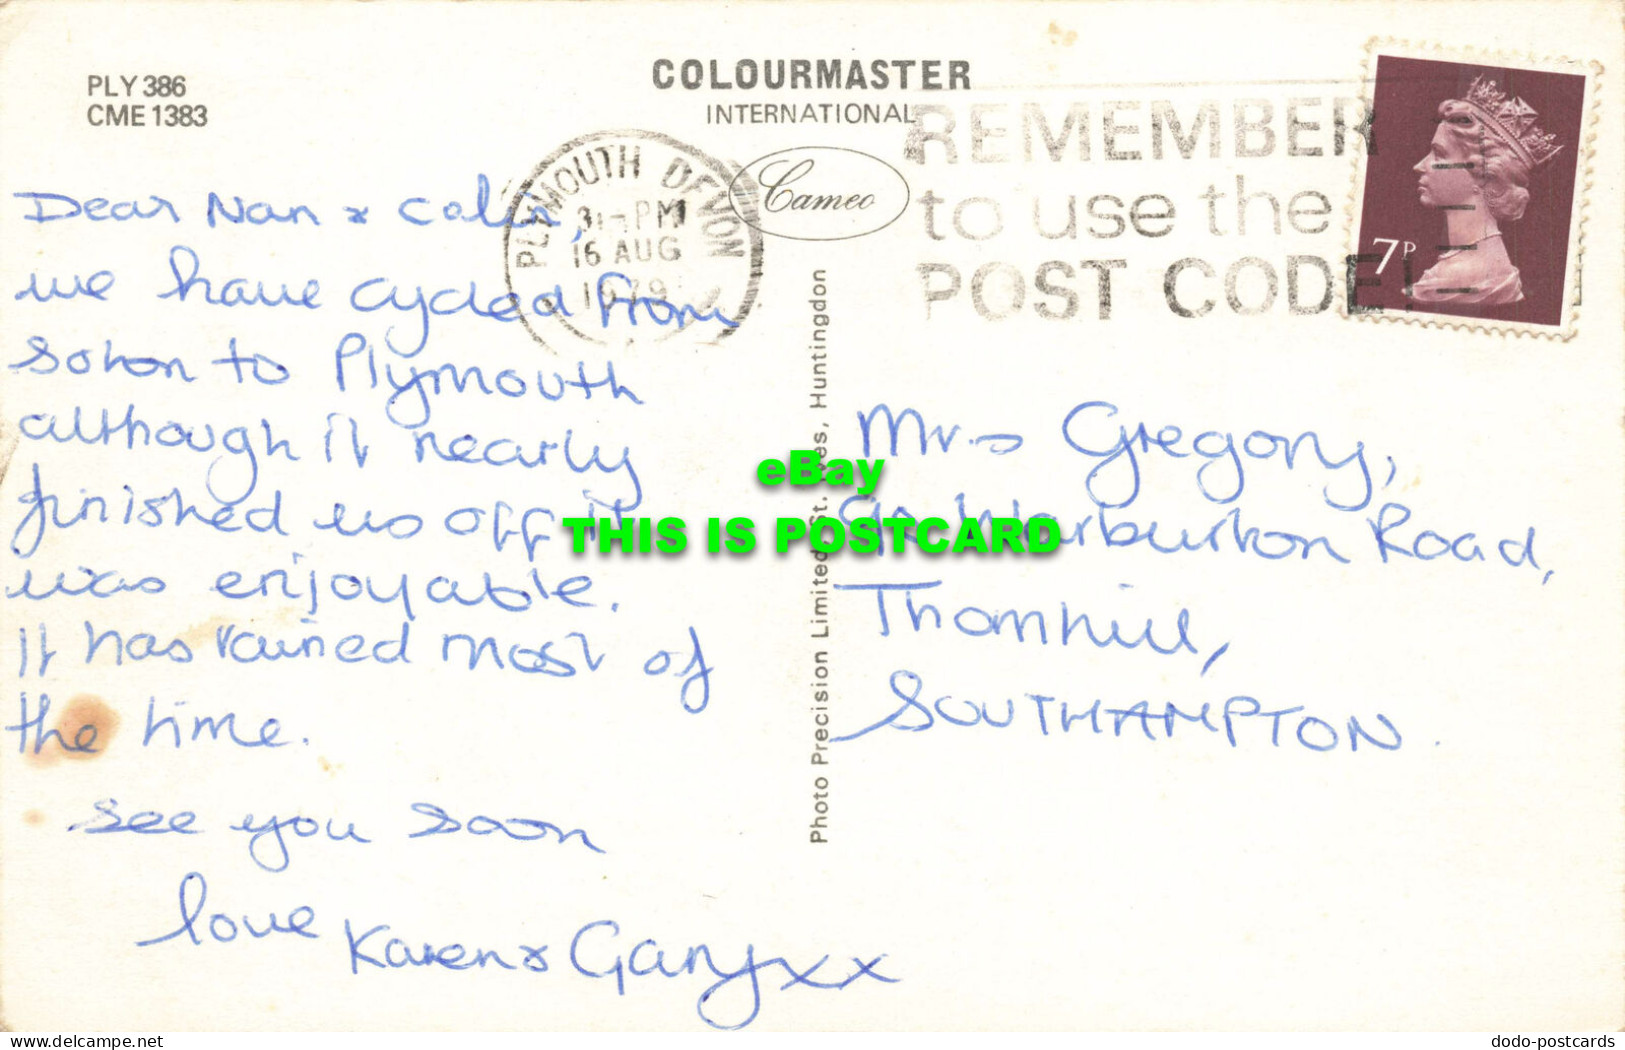 PLY 386
CME 1383
COLOURMASTER
INTERNATIONAL
Cameo
PLYMOUTH DEVON
PM
16 AUG
1979
REMEMBER
to use the
POST CODE!
7P
Dear Nan & Colin,
we have cycled from
Soton to Plymouth
although it nearly
finished us off it
was enjoyable.
It has rained most of
the time.
see you soon
love Karen & Gary xx
Photo Precision Limited, St. Ives, Huntingdon
Mrs Gregory,
Warburton Road,
Thornhill,
SOUTHAMPTON.
eBay
THIS IS POSTCARD
delcampe.net
dodo-postcards